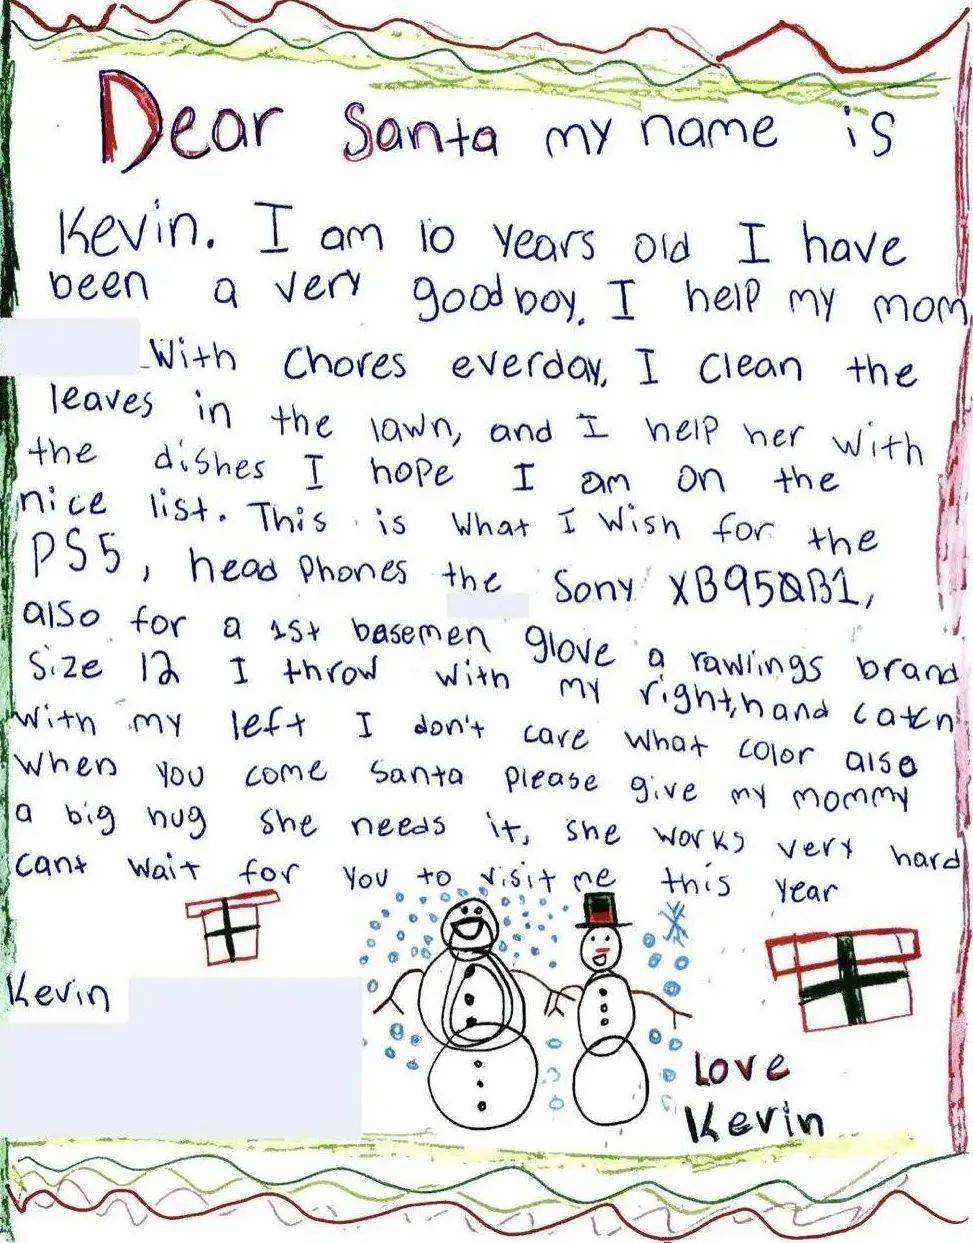 Dear Santa my name is
Kevin. I am 10 years old I have
been a very good boy. I help my mom
With chores everday, I clean the
leaves in the lawn, and I help her with
the dishes I hope I am on the
nice list. This is what I wish for the
PS5, head phones the Sony XB95QB1,
also for a 1st basemen glove a rawlings brand
size 12 I throw with my right, hand catch
with my left I don't care what color also
when you come santa please give my mommy
a big hug she needs it, she works very hard
cant wait for you to visit me this year
Kevin
Love
Kevin